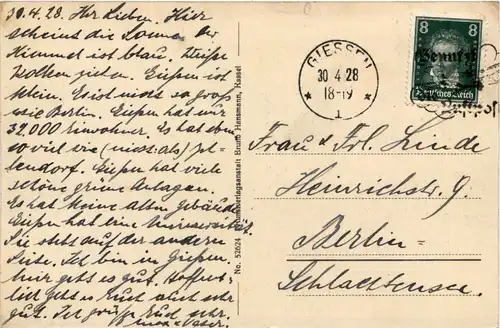 30.4.28. Ihr Lieben. Hier
scheint die Sonne. Der
Himmel ist blau. Weiße
Wolken ziehen. Gießen ist
schön. Es ist nicht so groß
wie Berlin. Gießen hat nur
32,000 Einwohner. Es hat eben
so viel wie (nicht: als) Zeh-
lendorf. Gießen hat viele
schöne grüne Anlagen.
Es hat keine alten Gebäude
Gießen hat eine Universität.
Sie steht auf der andern
Seite. Ich bin in Gießen.
Mir geht es gut. Hoffent-
lich geht es Euch auch sehr
gut. Ich grüße Euch sehr.
Vater.
No. 52624 Kunstverlagsanstalt Bruno Hansmann, Kassel
GIESSEN
30 4 28
18-19
* 1 *
8 8
Deutsches Reich
Benutzt
Frau & Frl. Linde
Heinrichstr. 9
Berlin=
Schlachtensee.